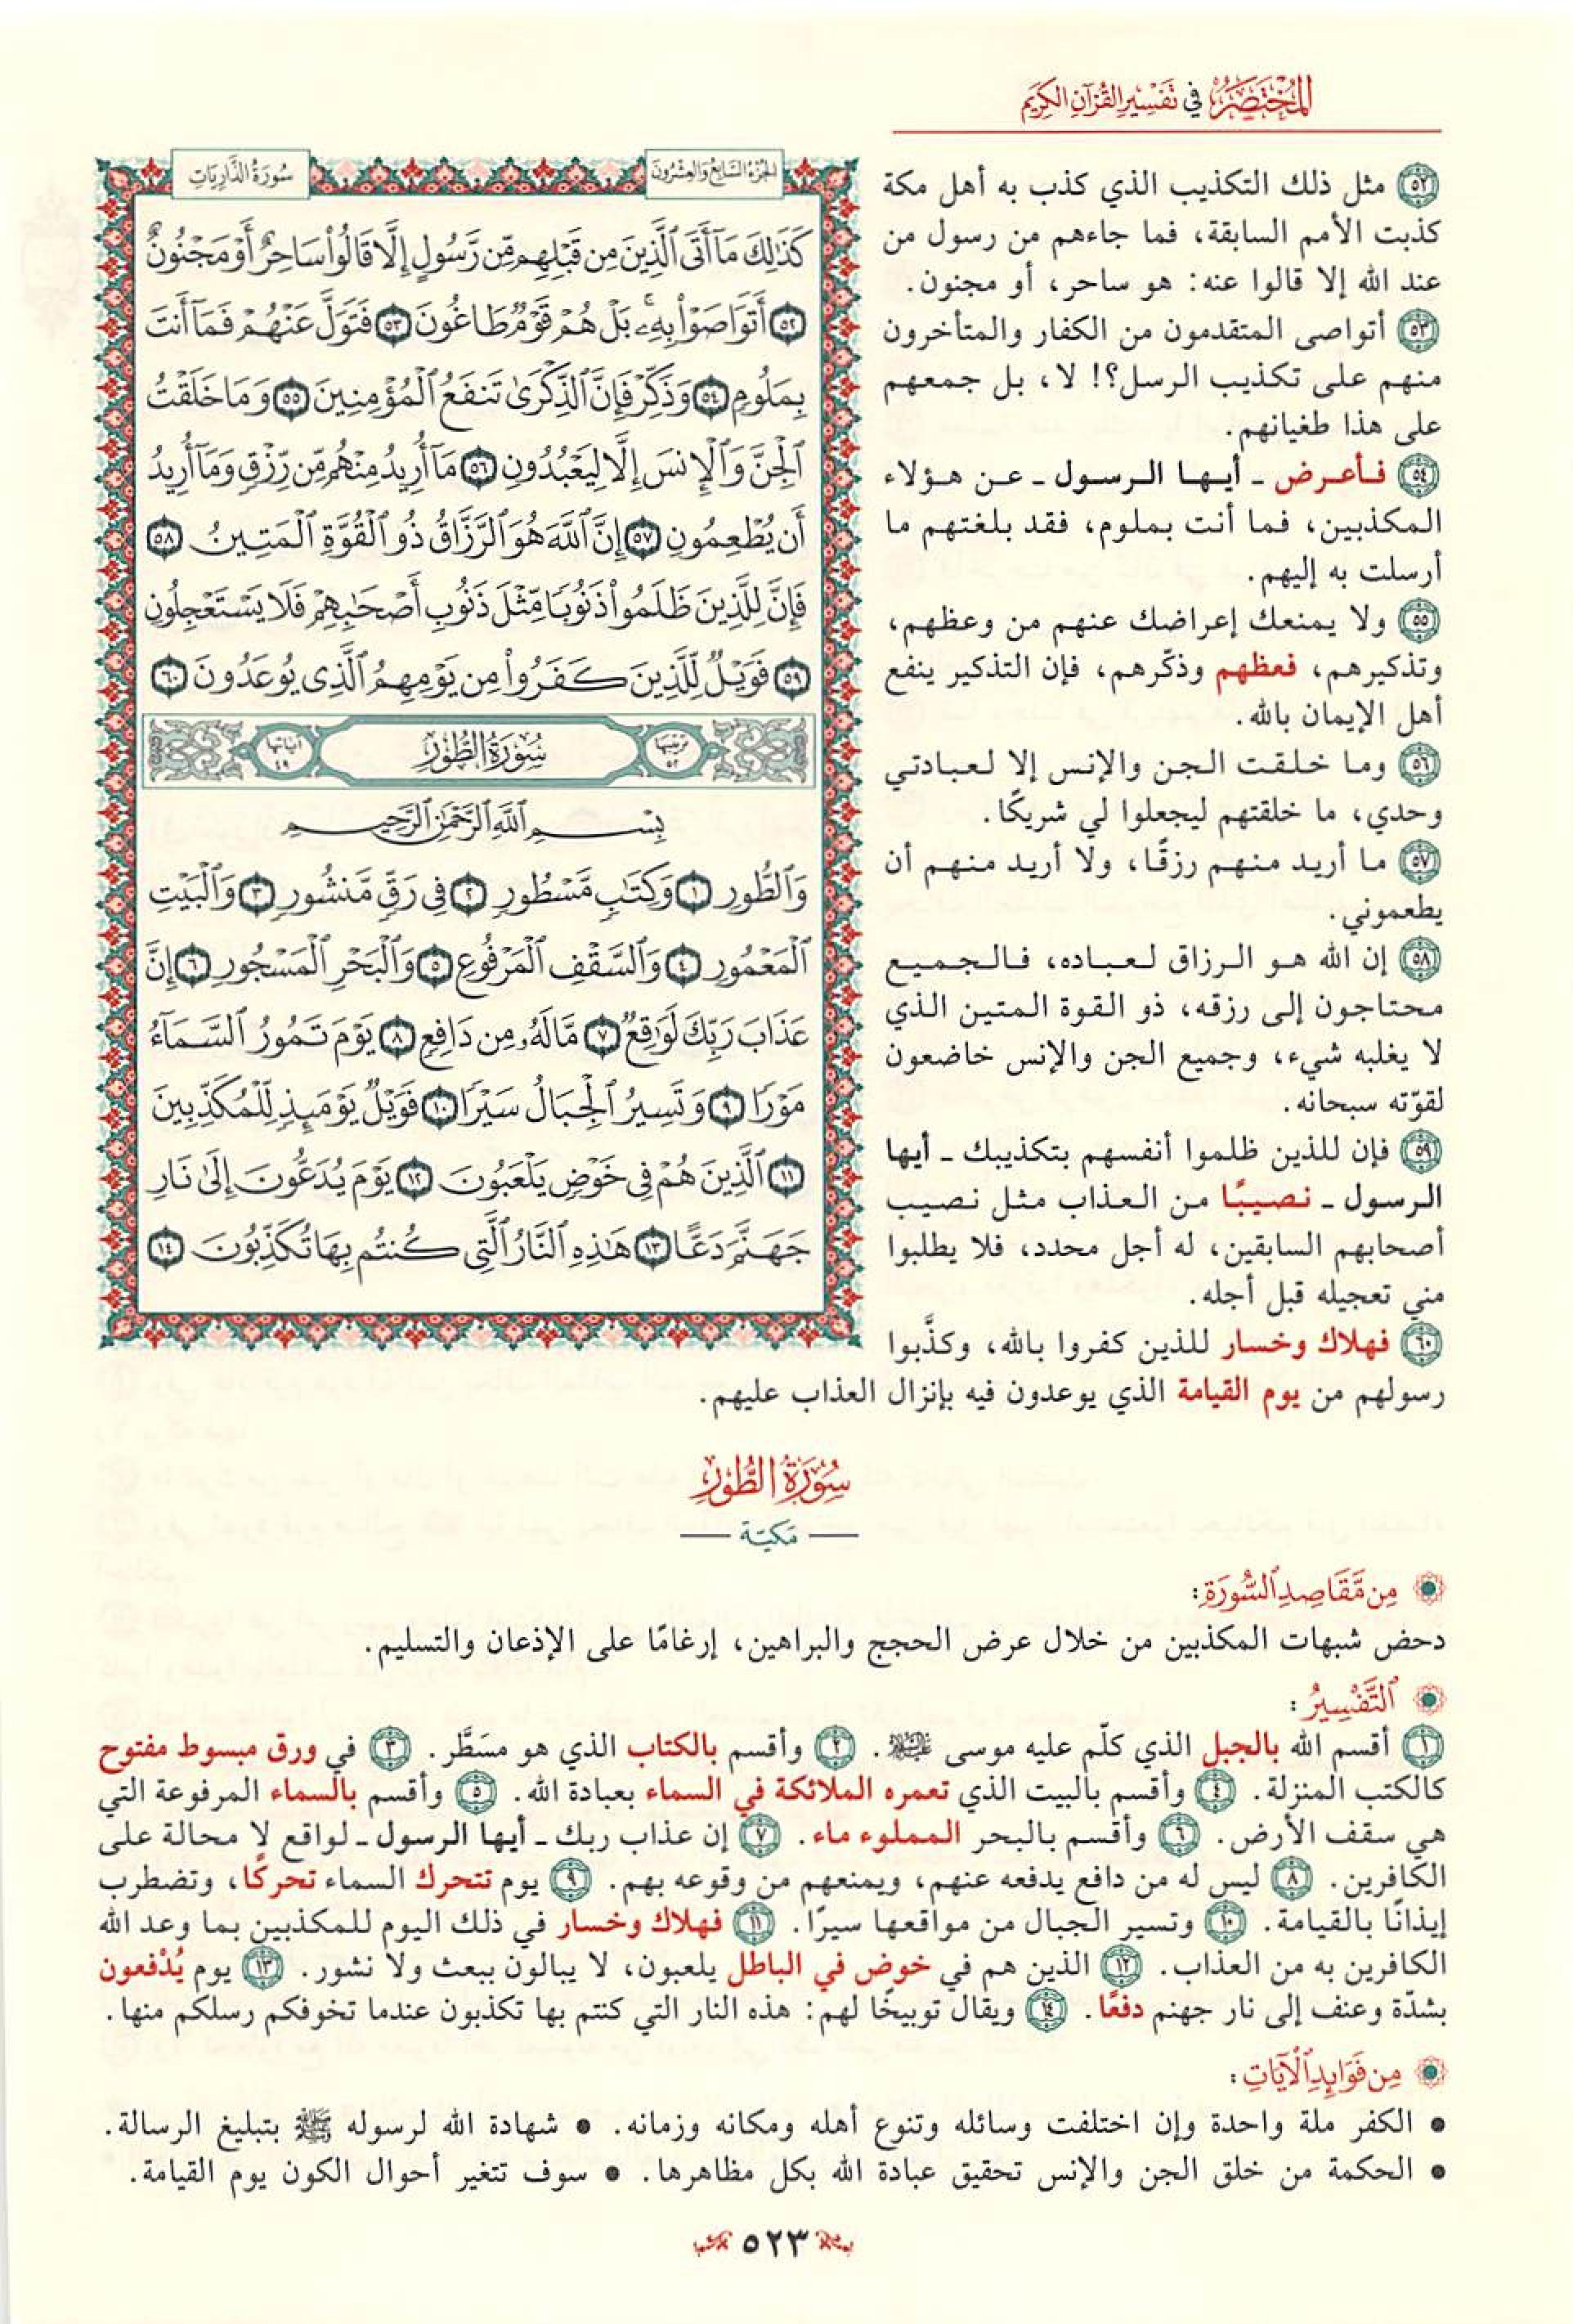 المختصر في تفسير القرآن الكريم
٥٢ مثل ذلك التكذيب الذي كذب به أهل مكة
كذبت الأمم السابقة، فما جاءهم من رسول من
عند الله إلا قالوا عنه: هو ساحر، أو مجنون.
٥٣ أتواصى المتقدمون من الكفار والمتأخرون
منهم على تكذيب الرسل؟! لا، بل جمعهم
على هذا طغيانهم.
٥٤ فأعرض ـ أيها الرسول ـ عن هؤلاء
المكذبين، فما أنت بملوم، فقد بلغتهم ما
أرسلت به إليهم.
٥٥ ولا يمنعك إعراضك عنهم من وعظهم،
وتذكيرهم، فعظهم وذكّرهم، فإن التذكير ينفع
أهل الإيمان بالله.
٥٦ وما خلقت الجن والإنس إلا لعبادتي
وحدي، ما خلقتهم ليجعلوا لي شريكًا.
٥٧ ما أريد منهم رزقًا، ولا أريد منهم أن
يطعموني.
٥٨ إن الله هو الرزاق لعباده، فالجميع
محتاجون إلى رزقه، ذو القوة المتين الذي
لا يغلبه شيء، وجميع الجن والإنس خاضعون
لقوّته سبحانه.
٥٩ فإن للذين ظلموا أنفسهم بتكذيبك ـ أيها
الرسول ـ نصيبًا من العذاب مثل نصيب
أصحابهم السابقين، له أجل محدد، فلا يطلبوا
مني تعجيله قبل أجله.
٦٠ فهلاك وخسار للذين كفروا بالله، وكذَّبوا
رسولهم من يوم القيامة الذي يوعدون فيه بإنزال العذاب عليهم.
الجزء السابع والعشرون
سورة الذاريات
كَذَٰلِكَ مَآ أَتَى ٱلَّذِينَ مِن قَبْلِهِم مِّن رَّسُولٍ إِلَّا قَالُوا۟ سَاحِرٌ أَوْ مَجْنُونٌ
٥٢ أَتَوَاصَوْا۟ بِهِۦ ۚ بَلْ هُمْ قَوْمٌ طَاغُونَ ٥٣ فَتَوَلَّ عَنْهُمْ فَمَآ أَنتَ
بِمَلُومٍ ٥٤ وَذَكِّرْ فَإِنَّ ٱلذِّكْرَىٰ تَنفَعُ ٱلْمُؤْمِنِينَ ٥٥ وَمَا خَلَقْتُ
ٱلْجِنَّ وَٱلْإِنسَ إِلَّا لِيَعْبُدُونِ ٥٦ مَآ أُرِيدُ مِنْهُم مِّن رِّزْقٍ وَمَآ أُرِيدُ
أَن يُطْعِمُونِ ٥٧ إِنَّ ٱللَّهَ هُوَ ٱلرَّزَّاقُ ذُو ٱلْقُوَّةِ ٱلْمَتِينُ ٥٨
فَإِنَّ لِلَّذِينَ ظَلَمُوا۟ ذَنُوبًا مِّثْلَ ذَنُوبِ أَصْحَٰبِهِمْ فَلَا يَسْتَعْجِلُونِ
٥٩ فَوَيْلٌ لِّلَّذِينَ كَفَرُوا۟ مِن يَوْمِهِمُ ٱلَّذِى يُوعَدُونَ ٦٠
ترتيبها ٥٢ سورة الطور آياتها ٤٩
بِسْمِ ٱللَّهِ ٱلرَّحْمَٰنِ ٱلرَّحِيمِ
وَٱلطُّورِ ١ وَكِتَٰبٍ مَّسْطُورٍ ٢ فِى رَقٍّ مَّنشُورٍ ٣ وَٱلْبَيْتِ
ٱلْمَعْمُورِ ٤ وَٱلسَّقْفِ ٱلْمَرْفُوعِ ٥ وَٱلْبَحْرِ ٱلْمَسْجُورِ ٦ إِنَّ
عَذَابَ رَبِّكَ لَوَٰقِعٌ ٧ مَّا لَهُۥ مِن دَافِعٍ ٨ يَوْمَ تَمُورُ ٱلسَّمَآءُ
مَوْرًا ٩ وَتَسِيرُ ٱلْجِبَالُ سَيْرًا ١٠ فَوَيْلٌ يَوْمَئِذٍ لِّلْمُكَذِّبِينَ
١١ ٱلَّذِينَ هُمْ فِى خَوْضٍ يَلْعَبُونَ ١٢ يَوْمَ يُدَعُّونَ إِلَىٰ نَارِ
جَهَنَّمَ دَعًّا ١٣ هَٰذِهِ ٱلنَّارُ ٱلَّتِى كُنتُم بِهَا تُكَذِّبُونَ ١٤
سورة الطور
مكية
من مقاصد السورة:
دحض شبهات المكذبين من خلال عرض الحجج والبراهين، إرغامًا على الإذعان والتسليم.
التفسير:
١ أقسم الله بالجبل الذي كلّم عليه موسى عليه السلام. ٢ وأقسم بالكتاب الذي هو مسَطَّر. ٣ في ورق مبسوط مفتوح
كالكتب المنزلة. ٤ وأقسم بالبيت الذي تعمره الملائكة في السماء بعبادة الله. ٥ وأقسم بالسماء المرفوعة التي
هي سقف الأرض. ٦ وأقسم بالبحر المملوء ماء. ٧ إن عذاب ربك ـ أيها الرسول ـ لواقع لا محالة على
الكافرين. ٨ ليس له من دافع يدفعه عنهم، ويمنعهم من وقوعه بهم. ٩ يوم تتحرك السماء تحركًا، وتضطرب
إيذانًا بالقيامة. ١٠ وتسير الجبال من مواقعها سيرًا. ١١ فهلاك وخسار في ذلك اليوم للمكذبين بما وعد الله
الكافرين به من العذاب. ١٢ الذين هم في خوض في الباطل يلعبون، لا يبالون ببعث ولا نشور. ١٣ يوم يُدْفعون
بشدّة وعنف إلى نار جهنم دفعًا. ١٤ ويقال توبيخًا لهم: هذه النار التي كنتم بها تكذبون عندما تخوفكم رسلكم منها.
من فوائد الآيات:
• الكفر ملة واحدة وإن اختلفت وسائله وتنوع أهله ومكانه وزمانه. • شهادة الله لرسوله ﷺ بتبليغ الرسالة.
• الحكمة من خلق الجن والإنس تحقيق عبادة الله بكل مظاهرها. • سوف تتغير أحوال الكون يوم القيامة.
٥٢٣